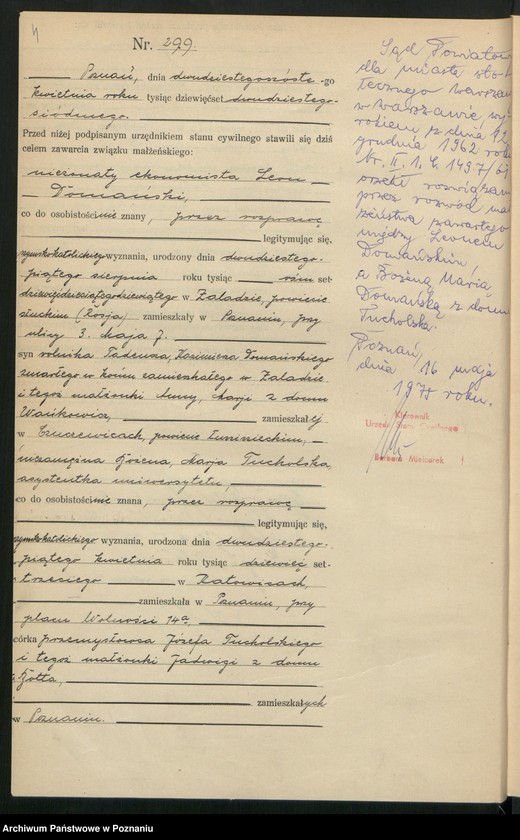 4
Nr. 299
Poznań, dnia dwudziestegoszóste-go
kwietnia roku tysiąc dziewięćset dwudziestego-
siódmego.
Przed niżej podpisanym urzędnikiem stanu cywilnego stawili się dziś
celem zawarcia związku małżeńskiego:
nieżonaty ekonomista Leon
Domański,
co do osobistości nie znany, przez rozprawę
legitymując się,
rzymskokatolickiego wyznania, urodzony dnia dwudziestego-
piątego sierpnia roku tysiąc ośm set-
dziewięćdziesiątegodziewiątego w Zaladzie, powiecie
słuckim (Rosja) zamieszkały w Poznaniu, przy
ulicy 3. Maja 7.
syn rolnika Tadeusza, Kazimierza Domańskiego
zmarłego w zamieszkałego w Zaladzie
i tegoż małżonki Anny, Marji z domu
Wańkowicz, zamieszkałej
w Czuczewiczach, powiecie Łuninieckim,
niezamężna Bożena, Marja Tucholska,
asystentka uniwersytetu,
co do osobistości nie znana, przez rozprawę
legitymując się,
rzymskokatolickiego wyznania, urodzona dnia dwudziestego-
piątego kwietnia roku tysiąc dziewięć set-
trzeciego w Katowicach,
zamieszkała w Poznaniu, przy
placu Wolności 14a,
córka przemysłowca Józefa Tucholskiego
i tegoż małżonki Jadwigi z domu
zamieszkałych
w Poznaniu.
Sąd Powiatowy
dla miasta stołecznego Warszawy
w Warszawie, wyrokiem z dnia 12
grudnia 1962 roku
Nr. II. 1. C. 1497/61
orzekł rozwiązanie
przez rozwód małżeństwa zawartego
między Leonem
Domańskim
a Bożeną Marią
Domańską z domu
Tucholska.
Poznań,
dnia 16 maja
1975 roku.
Kierownik
Urzędu Stanu Cywilnego
Barbara
Archiwum Państwowe w Poznaniu